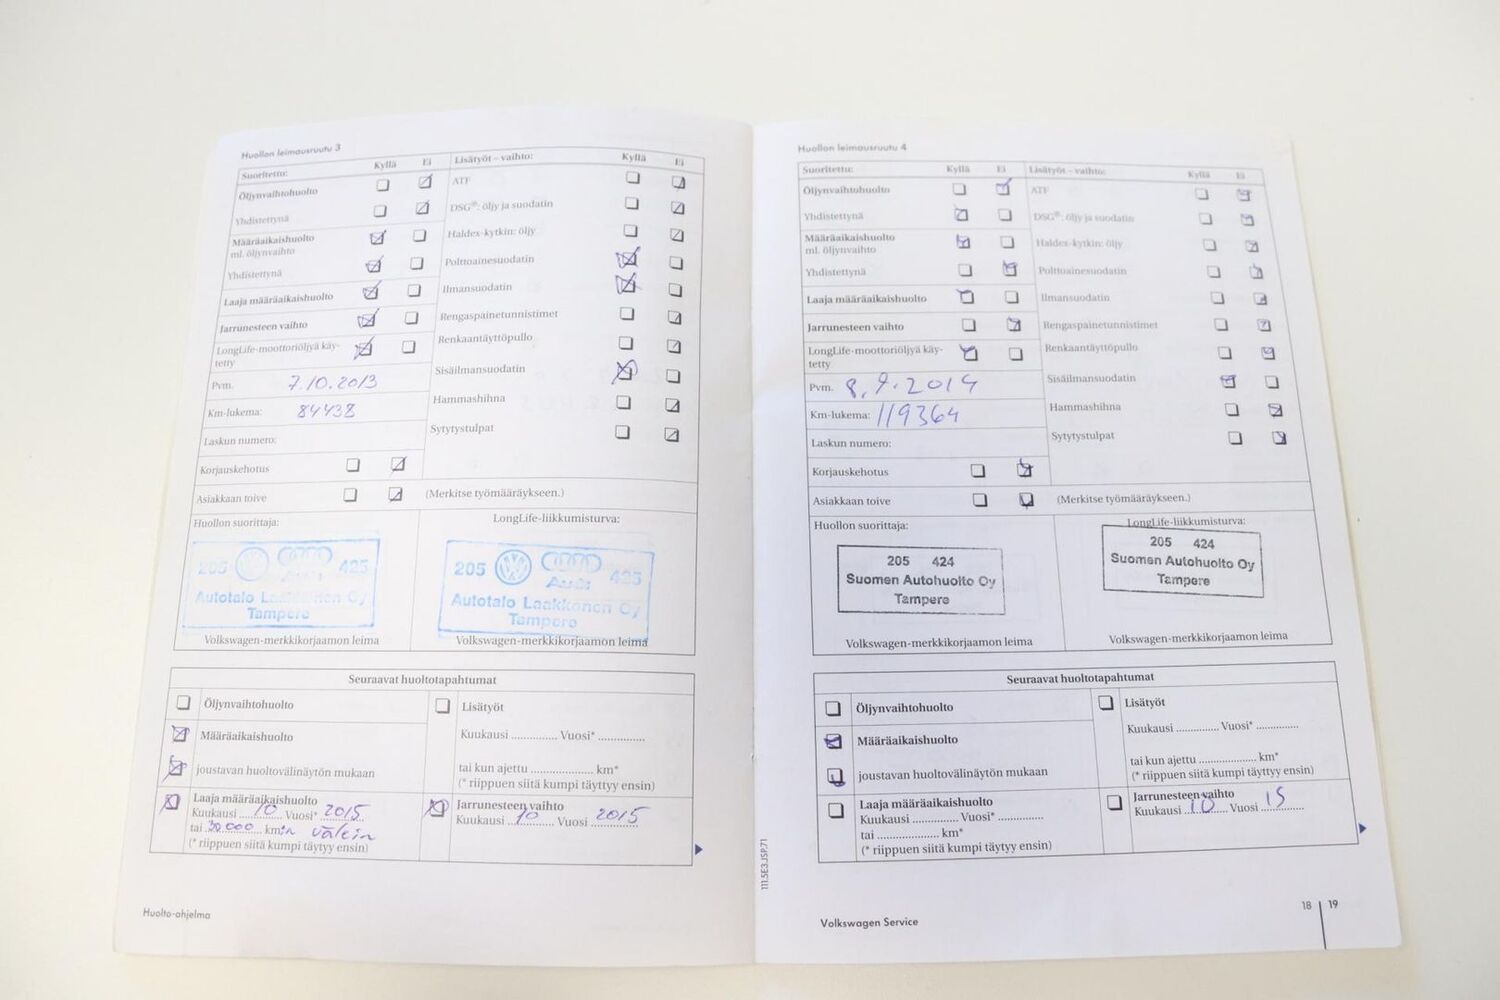 Huollon leimausruutu 3
Suoritettu: Kyllä Ei Lisätyöt - vaihto: Kyllä Ei
Öljynvaihtohuolto ATF
Yhdistettynä DSG®: öljy ja suodatin
Määräaikaishuolto Haldex-kytkin: öljy
ml. öljynvaihto
Yhdistettynä Polttoainesuodatin
Laaja määräaikaishuolto Ilmansuodatin
Jarrunesteen vaihto Rengaspainetunnistimet
LongLife-moottoriöljyä käy- Renkaantäyttöpullo
tetty
Pvm. 7.10.2013 Sisäilmansuodatin
Km-lukema: 84438 Hammashihna
Laskun numero: Sytytystulpat
Korjauskehotus
Asiakkaan toive (Merkitse työmääräykseen.)
Huollon suorittaja: LongLife-liikkumisturva:
205 425 205 425
Audi Audi
Autotalo Laakkonen Oy Autotalo Laakkonen Oy
Tampere Tampere
Volkswagen-merkkikorjaamon leima Volkswagen-merkkikorjaamon leima
Seuraavat huoltotapahtumat
Öljynvaihtohuolto Lisätyöt
Määräaikaishuolto Kuukausi .............. Vuosi* ..............
joustavan huoltovälinäytön mukaan tai kun ajettu .................... km*
(* riippuen siitä kumpi täyttyy ensin)
Laaja määräaikaishuolto Jarrunesteen vaihto
Kuukausi 10 Vuosi* 2015 Kuukausi 10 Vuosi 2015
tai 30000 km:n välein
(* riippuen siitä kumpi täytyy ensin)
Huolto-ohjelma
Huollon leimausruutu 4
Suoritettu: Kyllä Ei Lisätyöt - vaihto: Kyllä Ei
Öljynvaihtohuolto ATF
Yhdistettynä DSG®: öljy ja suodatin
Määräaikaishuolto Haldex-kytkin: öljy
ml. öljynvaihto
Yhdistettynä Polttoainesuodatin
Laaja määräaikaishuolto Ilmansuodatin
Jarrunesteen vaihto Rengaspainetunnistimet
LongLife-moottoriöljyä käy- Renkaantäyttöpullo
tetty
Pvm. 8.9.2014 Sisäilmansuodatin
Km-lukema: 119364 Hammashihna
Laskun numero: Sytytystulpat
Korjauskehotus
Asiakkaan toive (Merkitse työmääräykseen.)
Huollon suorittaja: LongLife-liikkumisturva:
205 424 205 424
Suomen Autohuolto Oy Suomen Autohuolto Oy
Tampere Tampere
Volkswagen-merkkikorjaamon leima Volkswagen-merkkikorjaamon leima
Seuraavat huoltotapahtumat
Öljynvaihtohuolto Lisätyöt
Määräaikaishuolto Kuukausi .............. Vuosi* ..............
joustavan huoltovälinäytön mukaan tai kun ajettu .................... km*
(* riippuen siitä kumpi täyttyy ensin)
Laaja määräaikaishuolto Jarrunesteen vaihto
Kuukausi .............. Vuosi* .............. Kuukausi 10 Vuosi 15
tai .................... km*
(* riippuen siitä kumpi täytyy ensin)
111.5E3.JSP.71
Volkswagen Service
18 19